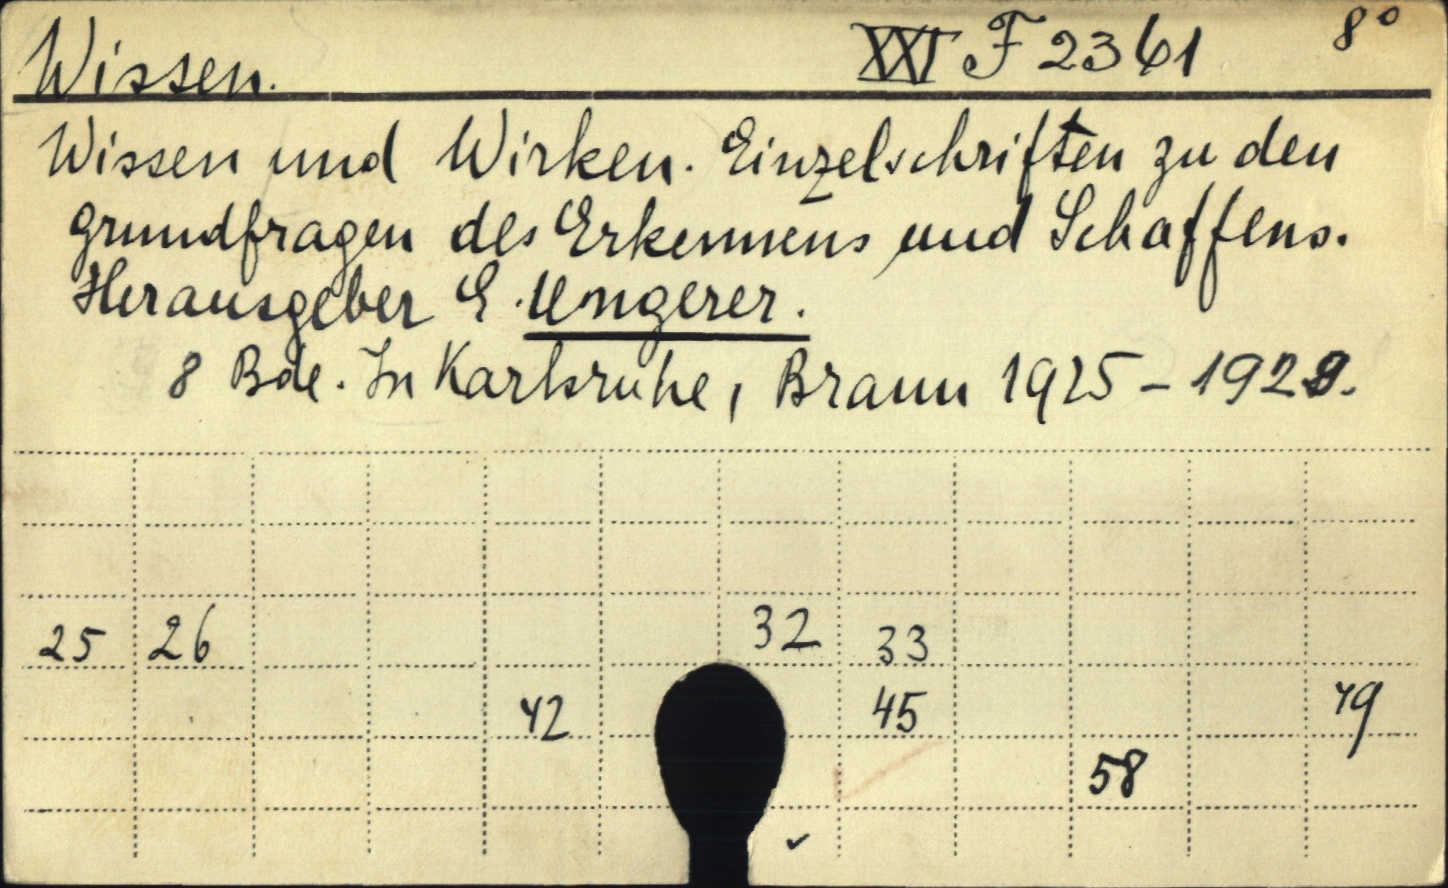 Wissen. XXI F 2361 8°
Wissen und Wirken. Einzelschriften zu den
Grundfragen des Erkennens und Schaffens.
Herausgeber E. Ungerer.
8 Bde. In Karlsruhe, Braun 1925 - 1929.
25 26 32 33
42 45 49
58